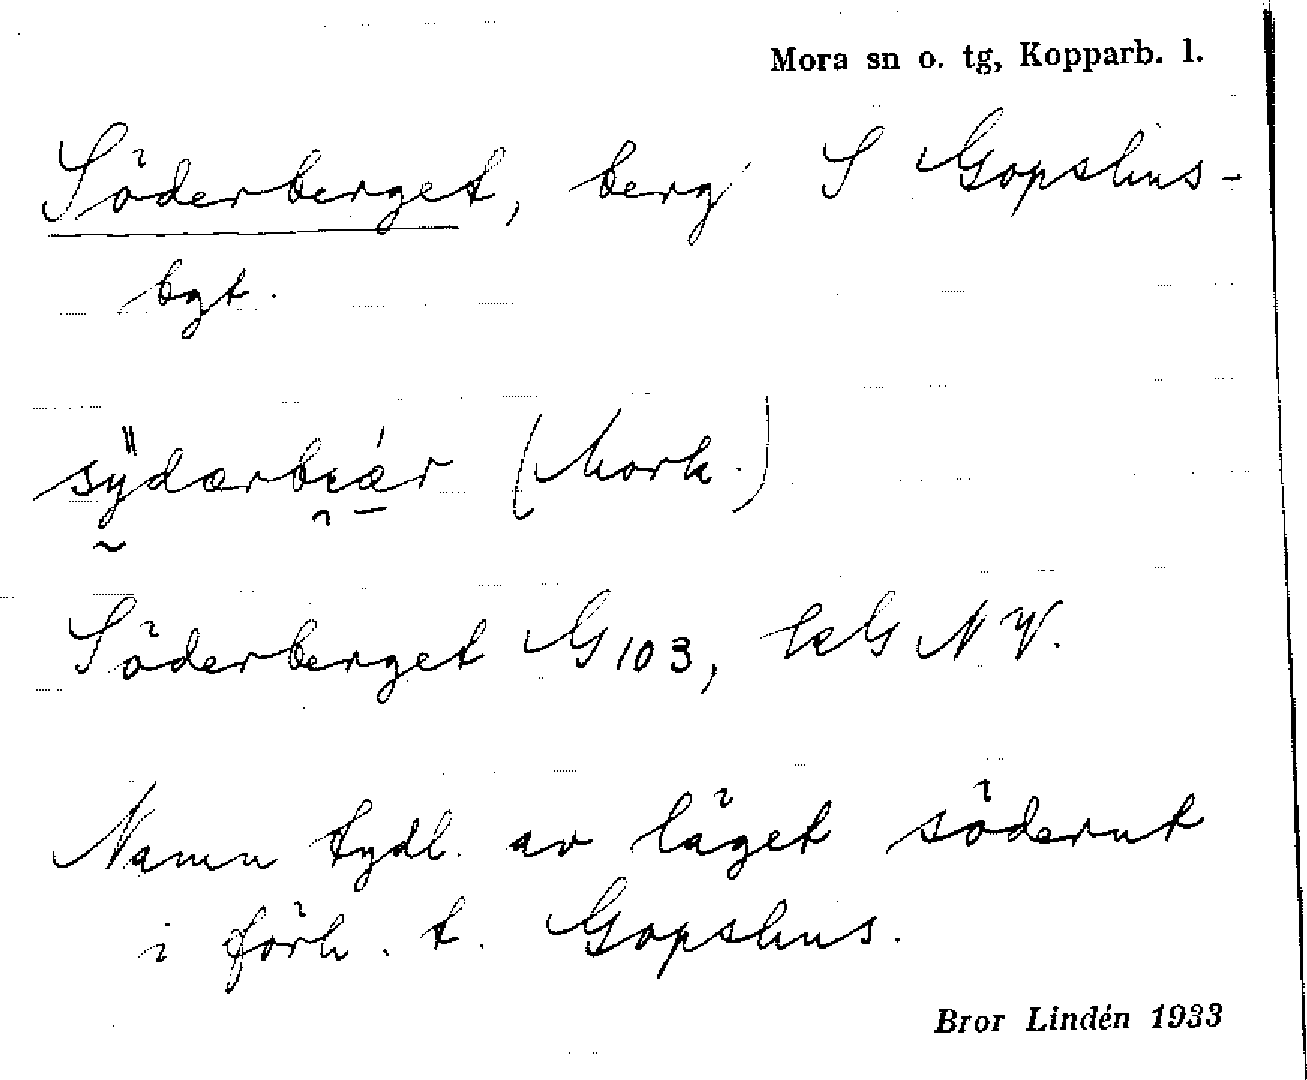 Mora sn o. tg, Kopparb. l.
Söderberget, berg S Gopshus-
bgt.
sÿdærbıær (Mork.)
Söderberget G103, kG NV.
Namn tydl. av läget söderut
i förh. t. Gopshus.
Bror Lindén 1933